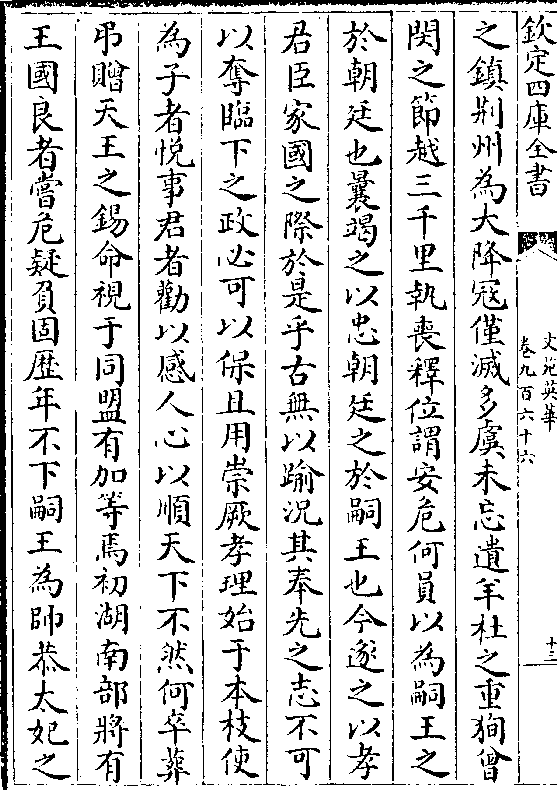 欽定四庫全書
文苑英華
卷九百六十六
十三
之鎮荆州為大降冦僅滅多虞未忘遺羊杜之重狥曾
閔之節越三千里執喪釋位謂安危何員以為嗣王之
於朝廷也曩竭之以忠朝廷之於嗣王也今遂之以孝
君臣家國之際於是乎古無以踰況其奉先之志不可
以奪臨下之政必可以保且用崇厥孝理始于本枝使
為子者悦事君者勸以感人心以順天下不然何卒葬
弔贈天王之錫命視于同盟有加等焉初湖南部將有
王國良者嘗危疑負固歴年不下嗣王為帥恭太妃之